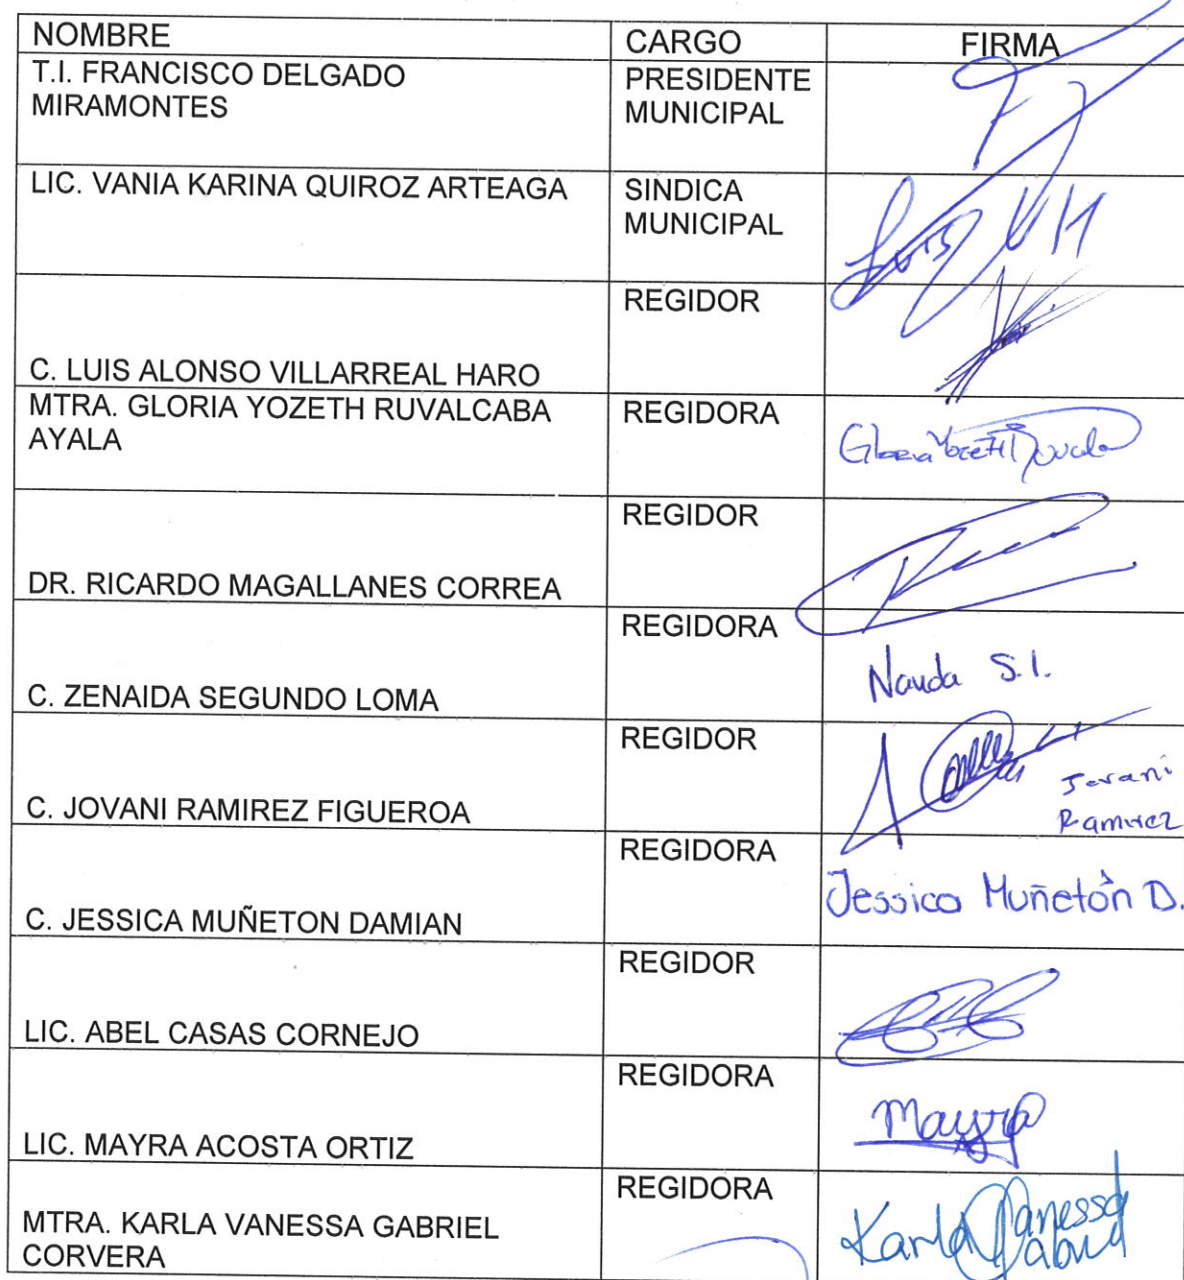 NOMBRE CARGO FIRMA
T.I. FRANCISCO DELGADO MIRAMONTES PRESIDENTE MUNICIPAL
LIC. VANIA KARINA QUIROZ ARTEAGA SINDICA MUNICIPAL
Luis VH
C. LUIS ALONSO VILLARREAL HARO REGIDOR
MTRA. GLORIA YOZETH RUVALCABA AYALA REGIDORA
Gloria
DR. RICARDO MAGALLANES CORREA REGIDOR
C. ZENAIDA SEGUNDO LOMA REGIDORA
S. l.
C. JOVANI RAMIREZ FIGUEROA REGIDOR
Jovani
Ramirez
C. JESSICA MUÑETON DAMIAN REGIDORA
Jessica Muñetón D.
LIC. ABEL CASAS CORNEJO REGIDOR
LIC. MAYRA ACOSTA ORTIZ REGIDORA
Mayra
MTRA. KARLA VANESSA GABRIEL CORVERA REGIDORA
Karla Vanessa